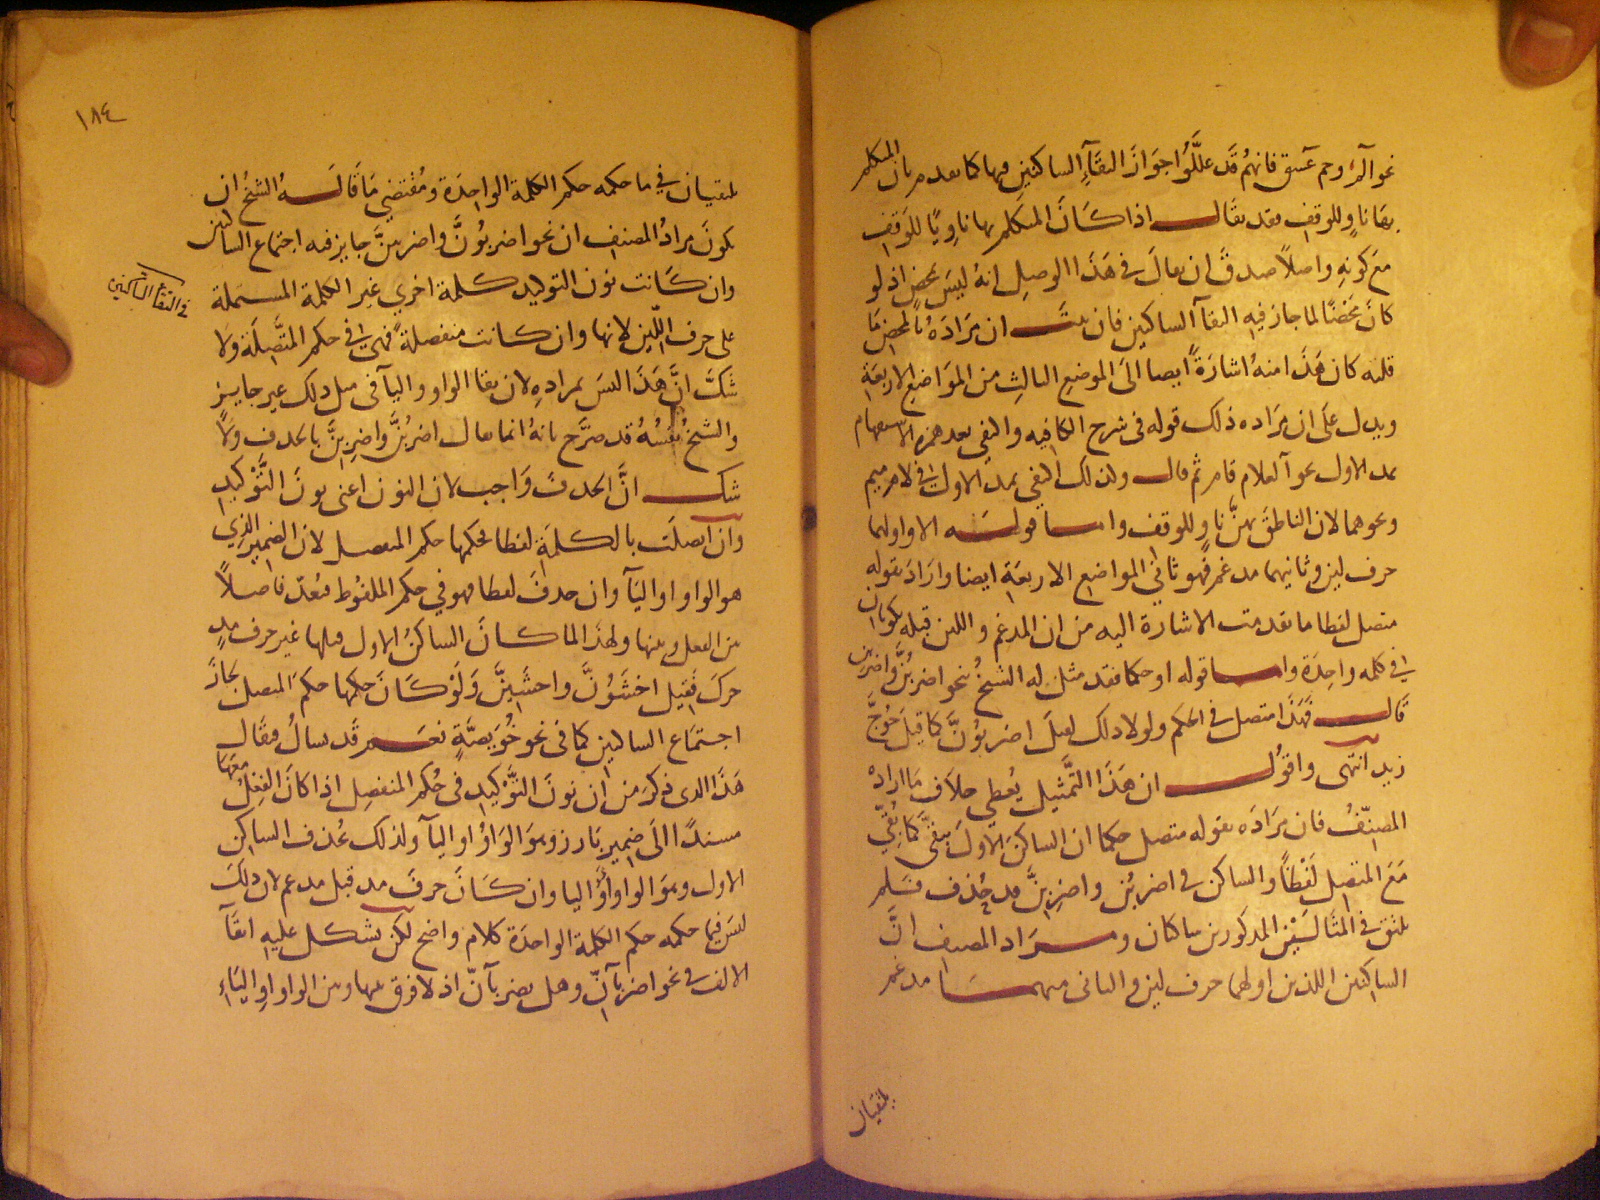 نحو آلمَ وحم عسق فانهمُ قَد علَّلُوا جوَازَ التقَآءِ الساكنينِ فيها كما تعدم بان المتكلم
بهَا ناوٍ للوقفِ فقد يقَال اذا كَانَ المتكلم بها ناوِيًا للوَقفِ
معَ كونهِ واصلاً صدقَ ان يقالَ في هَذَا الوصلِ انهُ ليسَ بمحضٍ اذ لو
كانَ مَحضًا لما جاز فيهِ التقآ الساكنين فان ثبَت ان مرَادَهُ بالمحضِ مَا
قلته كان هَذا منهُ اشارَةً ايضا الىَ الموضعِ الثالثِ من الموَاضعِ الاربَعَةِ
ويدل علَى ان مرَاده ذلك قوله في شرح الكافيه والتقي بعد همزه الاستفهام
بمد الاول نحو آلغلام قام ثم قال ولذلك التقي بمد الاول في لام ميم
ونحوهما لان الناطقَ بهنَّ ناوٍ للوقف واما قولَه الا واولهما
حرف لين وثانيهما مدغم فهو ثاني المواضعِ الاربعَة ايضا وارَادَ بقوله
متصل لفظا ما تقدمت الاشارة اليه من ان المدغم واللين قبله يكونان
في كلمه واحِدَة واما قوله او حكما فقد مثل له الشيخُ بنحو اضربُنَّ واضربِن
قَال فهَذَا متصل في الحكم ولولا ذلك لقيلَ اضربوُنَّ كما قيلَ حَوُجَّ
زيد انتهى واقوُل ان هَذَا التَّمثيل يُعطي خلاَف مَا اراده
المصَنّفُ فان مرَادَه بقوله متصل حكما ان الساكنَ الاولَ يبقىَّ كمَا بُقِّي
مَعَ المتصِل لَفْظًا والساكن في اضربُن واضرِبِنَّ قد حُذف فَلم
يلتق في المثَالَيْنِ المذكورين ساكنان ومراد المصنف انَّ
الساكنين اللذين اولهما حرف لين والثاني منهما مدغم
يلتقيان
١٨٤
يلتقيان في ما حكمه حكم الكلمة الواحِدَة ومُقتضي مَا قَالَهُ الشيخُ ان
يكونَ مرادُ المصنفِ ان نحو اضربوُنَّ واضربينَّ جايز فيه اجتماع الساكنين
وان كَانت نون التوكيد كلمة اخري غير الكلمة المشتملة
على حرف اللّين لانها وان كانت منفصلةً فهيَ في حكم المتَّصلَة ولَا
شكَّ انَّ هَذَا ليسَ بمرادهِ لان بقا الواو واليآ في مثل ذلك غير جايز
والشيخُ نفسُهُ قد صرَّح بانهُ انما يقال اضربُنَّ واضرِبِنَّ بالحذف ولَا
شك انَّ الحذفَ وَاجب لان النون اعني نونَ التَّوْكيدِ
وان اتصلَت بالكلمَة لفظا فحكمها حكم المنفصل لان الضمير الذي
هو الواو او اليَآ وان حذفَ لفظا فهو في حكم الملفوُظ فعُدّ فاصلاً
بين الفعل وبينها ولهذَا لما كانَ الساكنُ الاول قبلها غير حرف مدٍ
حركَ فقيل اخشَوُنَّ واخشَيِنَّ وَلَوْ كَانَ حكمها حكم المتصل لجَازَ
اجتمَاع الساكنين كما في نحو خُوَيصَّةٍ نعَم قد يسالُ فيقَال
هَذَا الذي ذكرَ من ان نونَ التَّوْكيدِ في حُكم المنفصل اذا كانَ الفِعْلُ معَهَا
مسندًا الىَ ضمير بَارز وهوَ الوَاوُ او اليآ ولذلك يُحذف الساكن
الاول وهوَ الواو اوُ اليا وان كَانَ حرفَ مد قبل مدغم لان ذلكَ
ليسَ فيما حكمه حكم الكلمة الواحدَة كلام واضح لكن يشكل عليهِ ابقَآ
الالف في نحو اضربَآنّ وهل يضربآنّ اذ لا فرق بينها وبين الواو او اليَاءِ
في التقا الساكنين